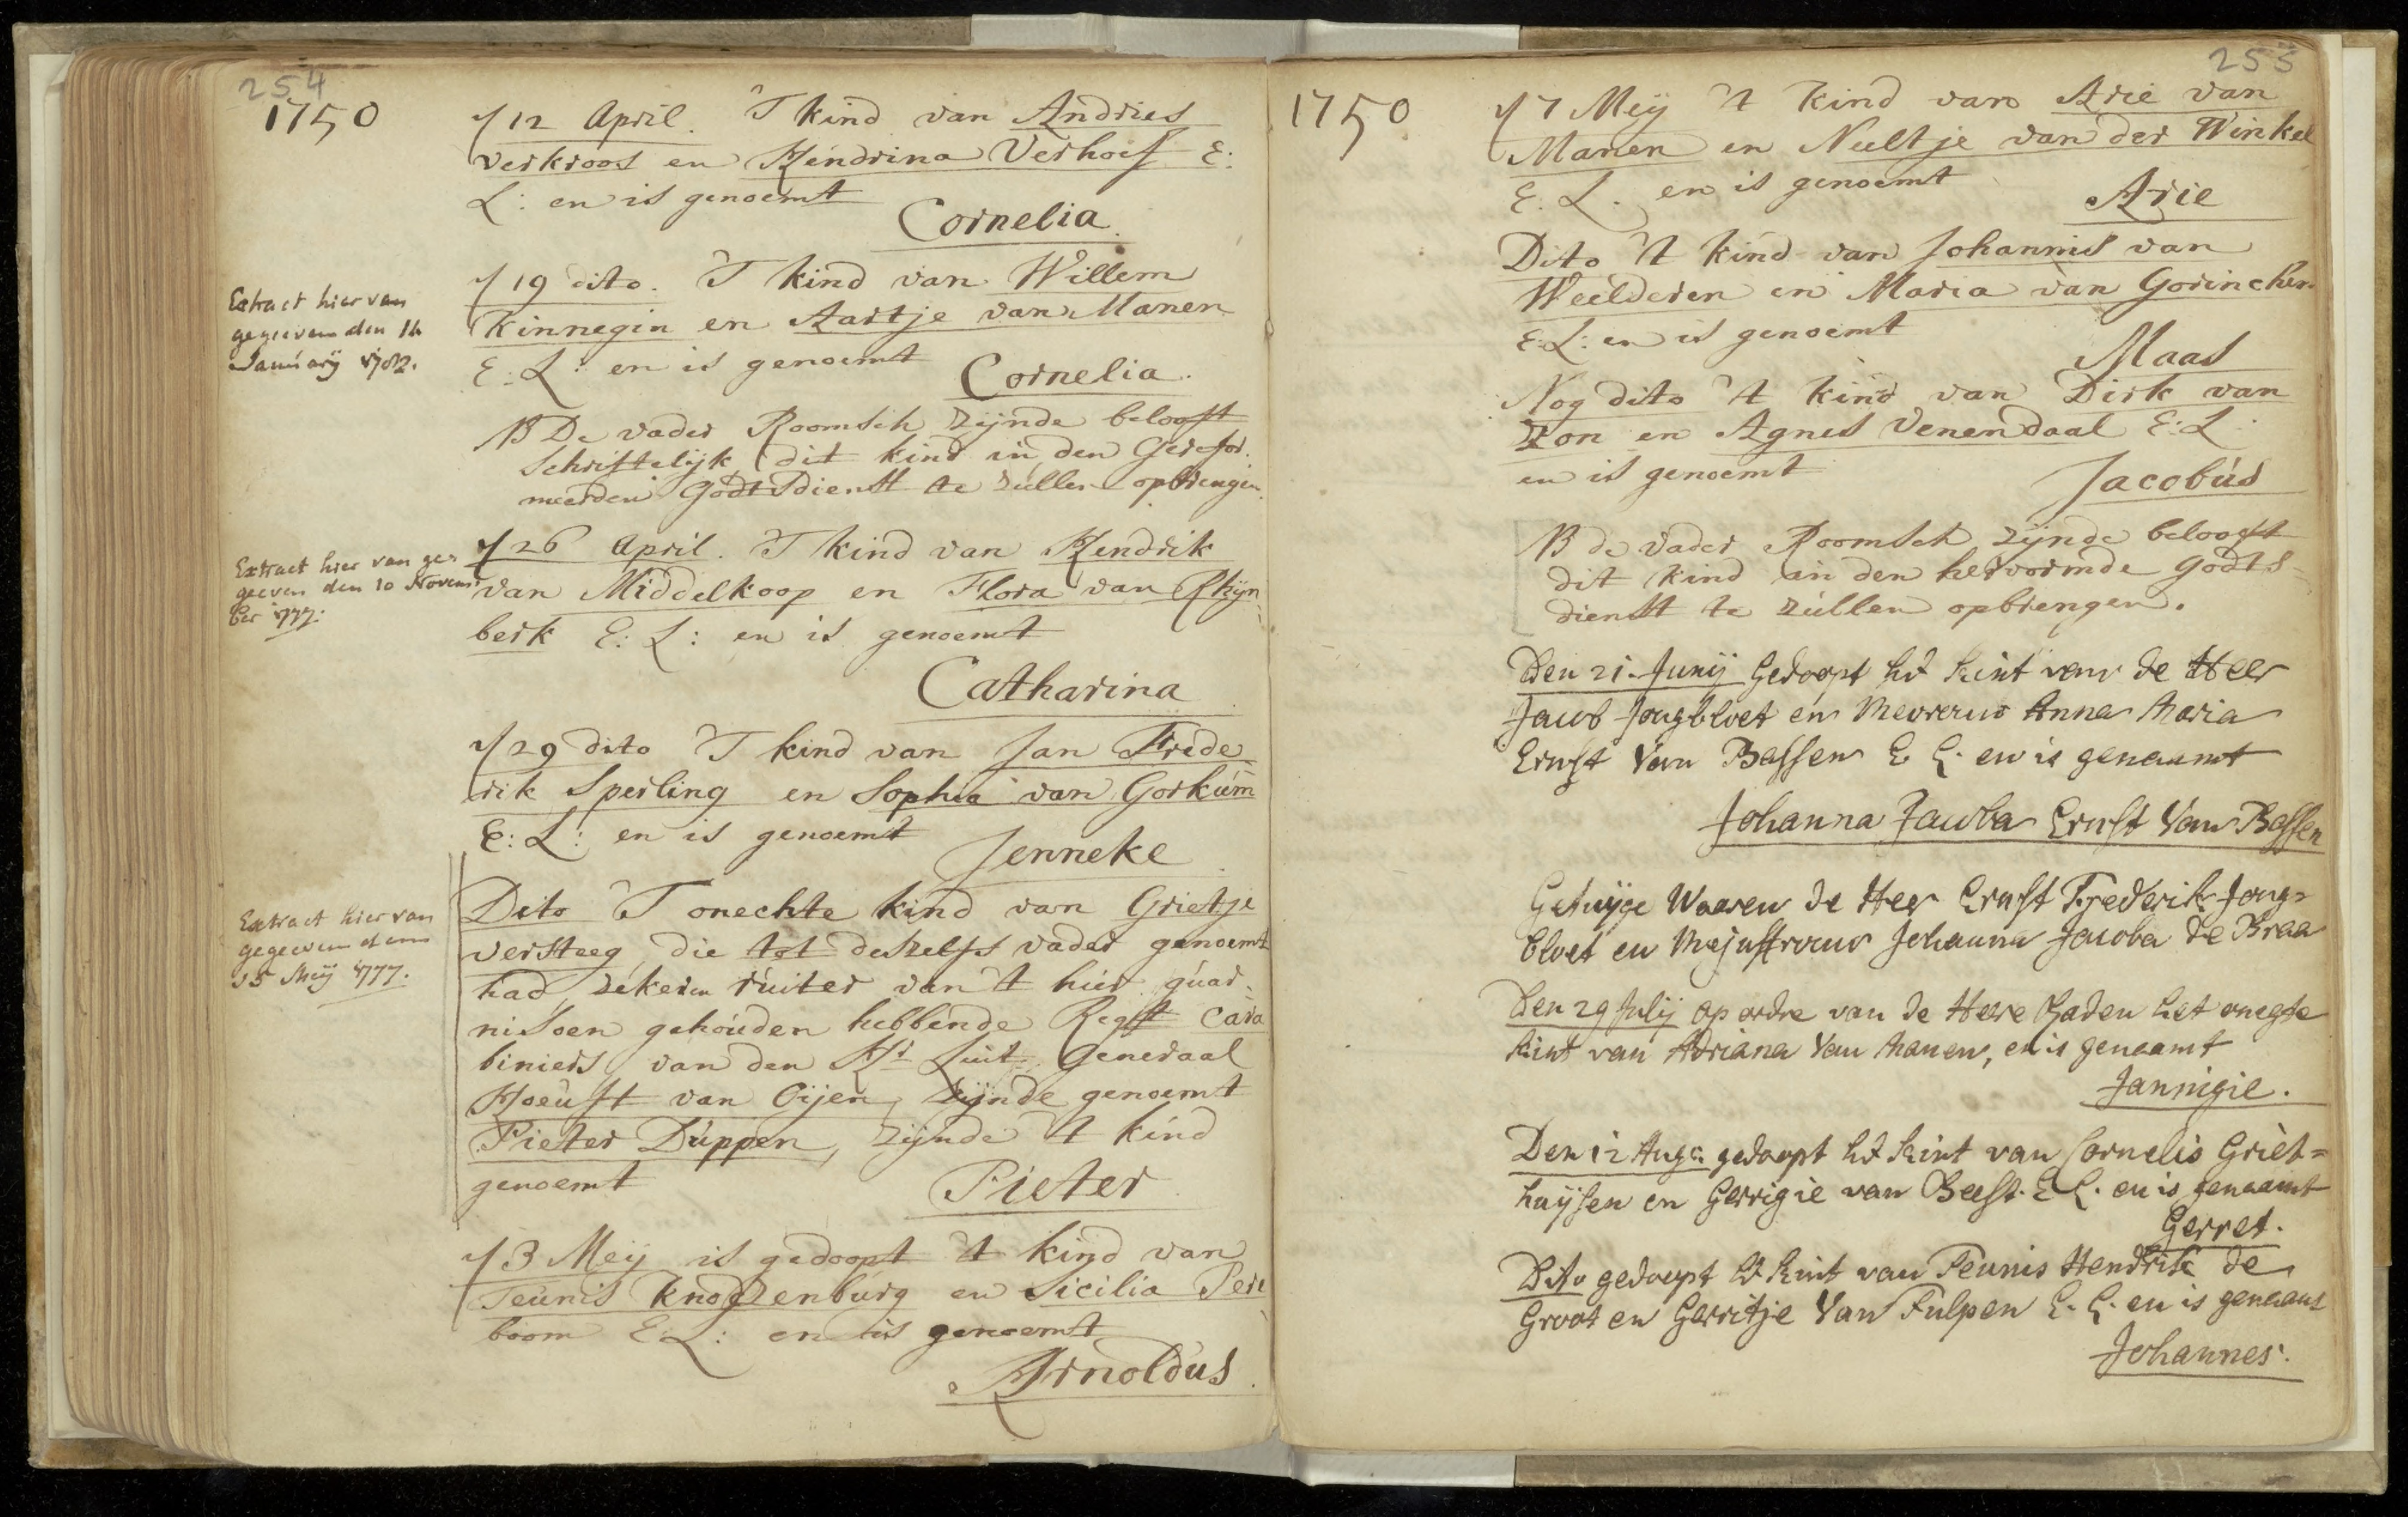 254
1750
12 April. T kind van Andries
Verkroos en Hendrina Verhoef E:
L: en is genoemt
Cornelia
19 dito. T kind van Willem
Kinnegin en Aartje van Manen
E: L: en is genoemt
Cornelia.
Extract hier van
gegeeven den 14
January 1782.
NB De vader Roomsch zijnde belooft
Schriftelijk dit kind in den Gerefor.
meerden Godtsdienst te zullen opbrengen.
26 April. T kind van Hendrik
van Middelkoop en Flora van Rhijn
berk E: L: en is genoemt
Catharina
Extract hier van ge-
geeven den 10 Novem
ber 1777.
29 dito T kind van Jan Frede
rik Sperling en Sophia van Gorkum
E: L: en is genoemt
Jenneke
Extract hier van
gegeeven den
15 Meij 1777.
Dito T onechte kind van Grietje
versteeg, die tot deszelfs vader genoemt
had zekeren ruiter van 't hier guar-
nisoen gehouden hebbende Regt Cara
biniers van den Hr Luit Generaal
Hoeuft van Oijen, zijnde genoemt
Pieter Duppen, zijnde 't kind
genoemt
Pieter
3 Meij is gedoopt 't kind van
Teunis Knodzenburg en Sicilia Pere
boom E L: en is genoemt
Arnoldus
255
1750
7 Meij 't kind van Arie van
Manen en Neeltje van der Winkel
E. L. en is genoemt
Arie
Dito 't kind van Johannis van
Weelderen en Maria van Gorinchem
E: L: en is genoemt
Maas
Nog dito 't kind van Dirk van
Zon en Agnes Venendaal E: L:
en is genoemt
Jacobus
NB de vader Roomsch zijnde belooft
dit kind in den hervormde Godts-
dienst te zullen opbrengen.
Den 21 Junij Gedoopt het kint van de Heer
Jacob Jongbloet en Mevrouw Anna Maria
Ernst Van Bassen E L. en is genaamt
Johanna Jacoba Ernst Van Bassen
Getuijge Waaren de Heer Ernst Frederik Jong-
bloet en Mejuffrouw Johanna Jacoba de Braa
Den 29 Julij op ordre van de Heere Raden het onegte
kint van Adriana Van Manen, en is genaamt
Jannigie.
Den 12 Augs. gedoopt het kint van Cornelis Griet=
huijsen en Gerrigie van Beest. E L. en is genaamt
Gerret.
Dito gedoopt het kint van Teunis Hendrik de
Groot en Gerritje Van Tulpen E. L. en is genaamt
Johannes.